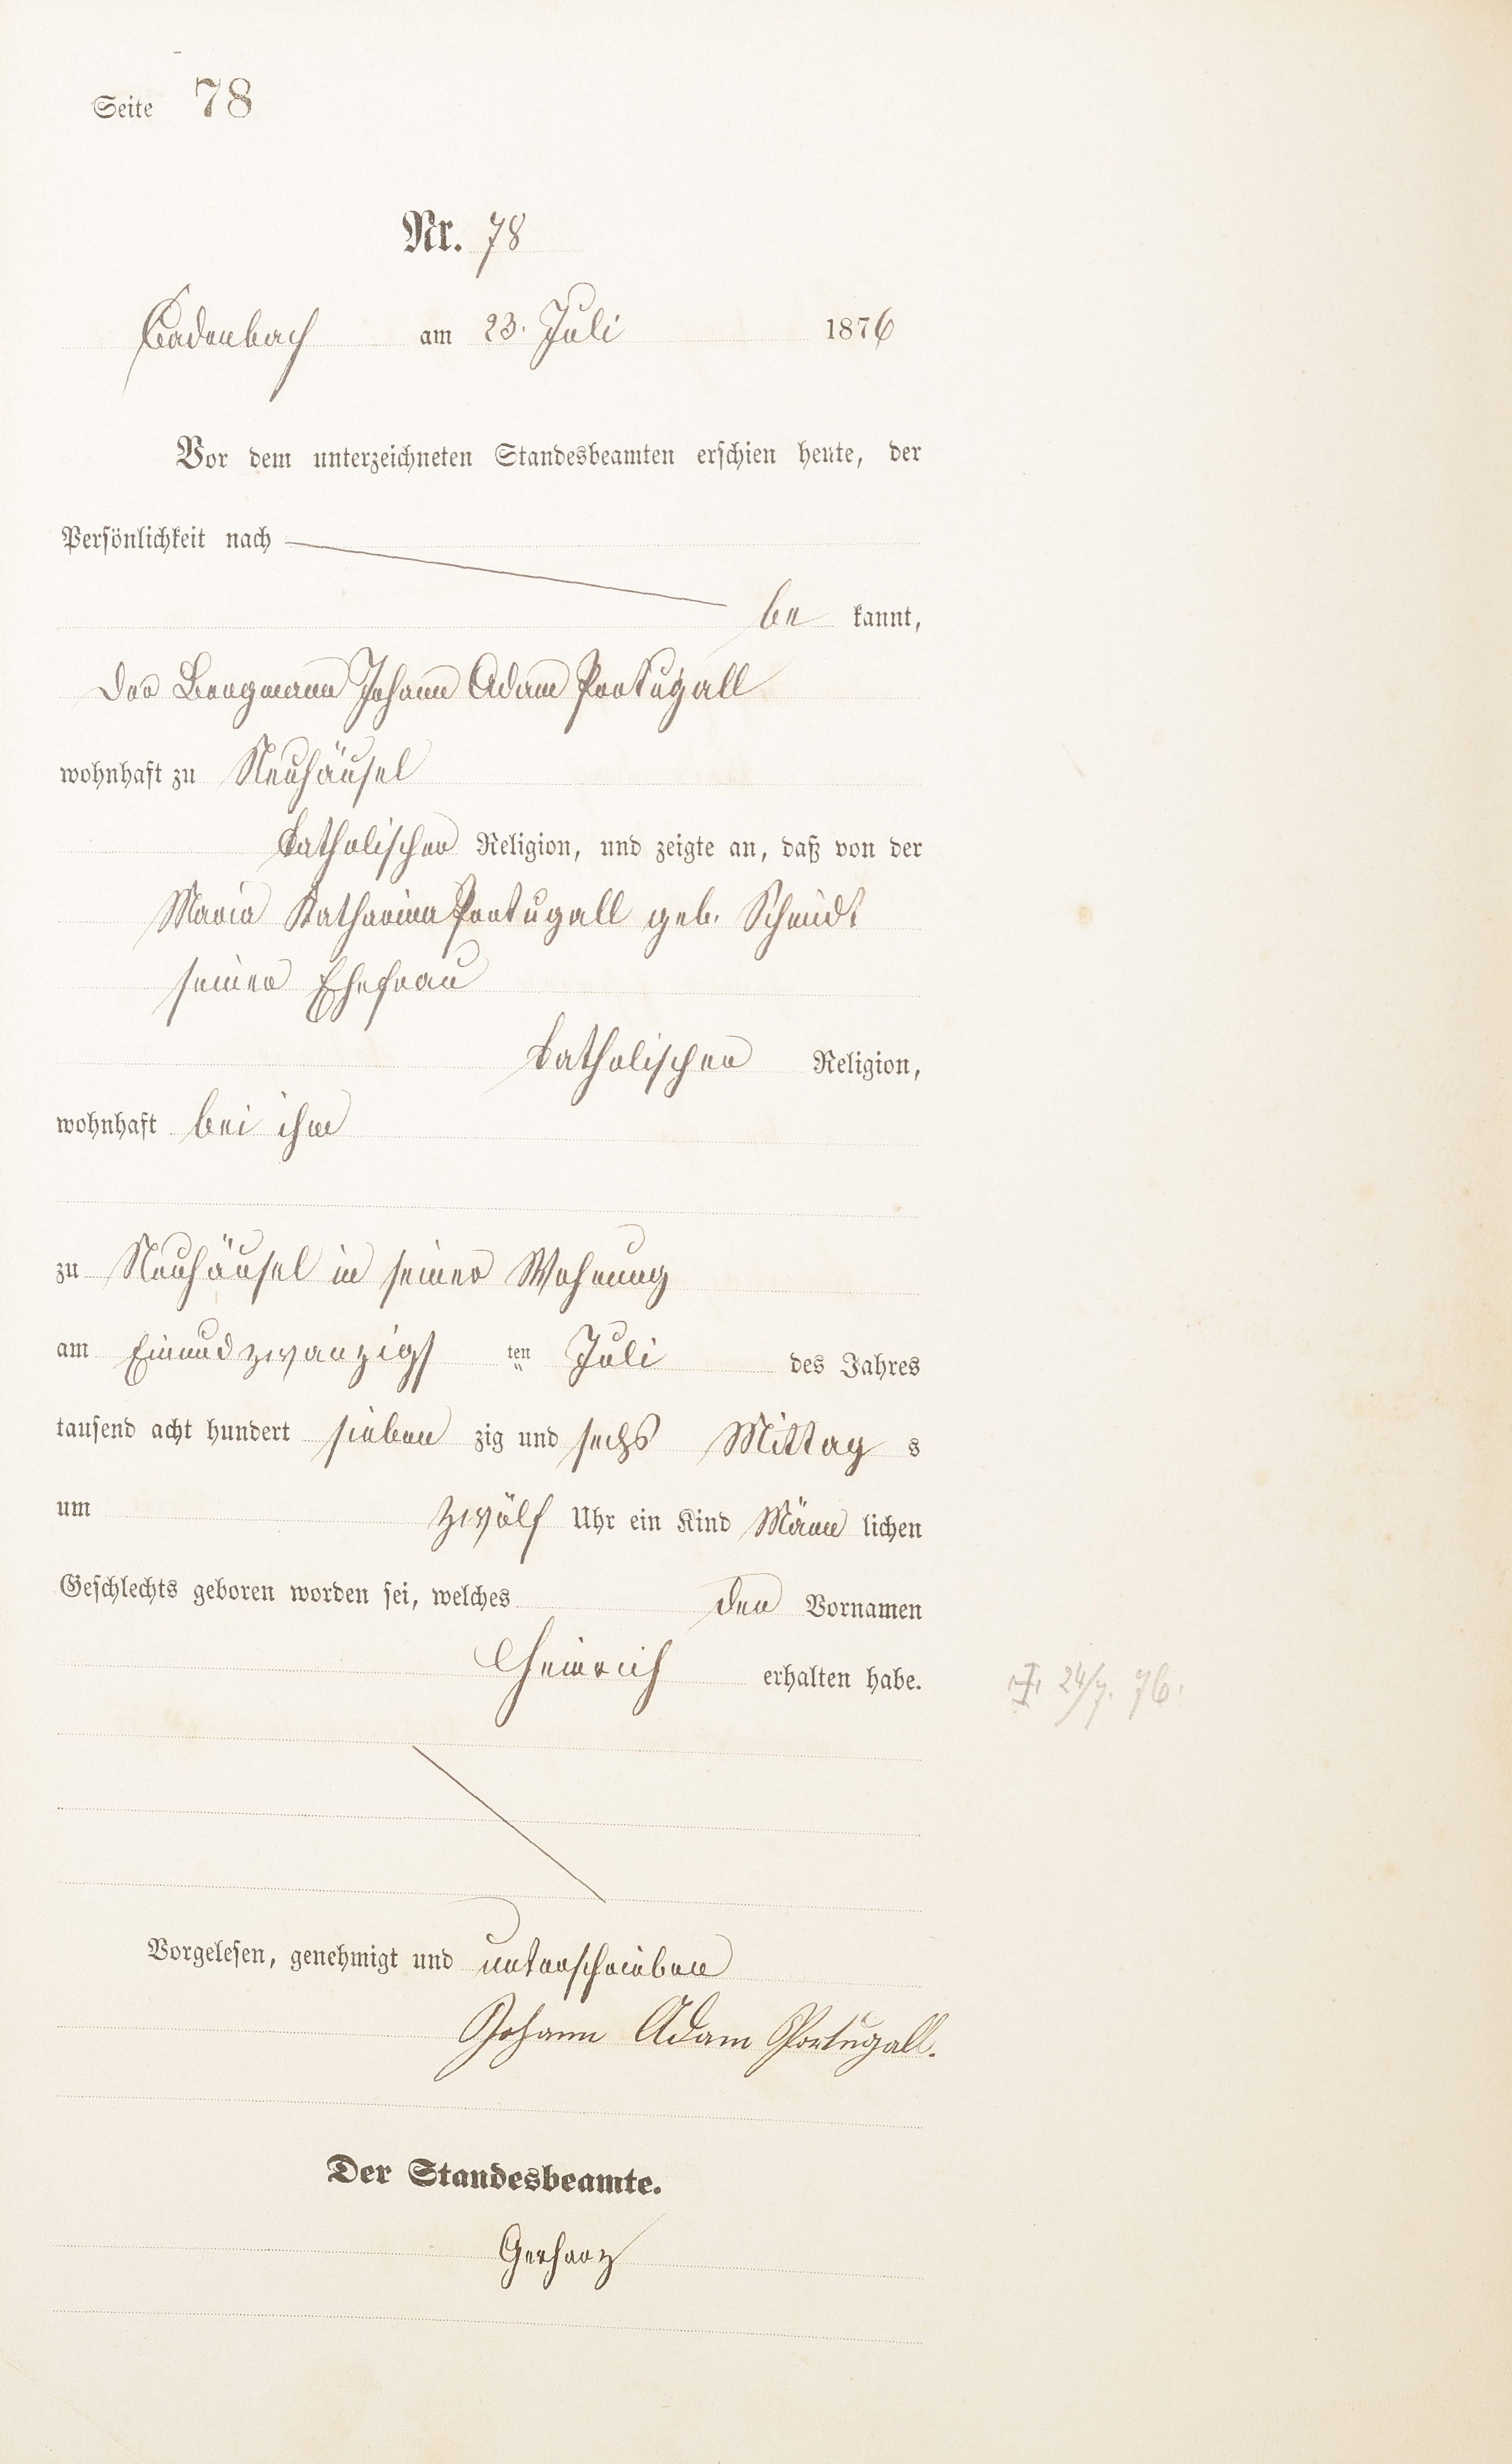 Seite 78
Nr. 78
Cadenbach am 23. Juli 1876
Vor dem unterzeichneten Standesbeamten erschien heute, der
Persönlichkeit nach
be kannt,
der Bergmann Johann Adam Portugall
wohnhaft zu Neuhäusel
katholischer Religion, und zeigte an, daß von der
Maria Katharina Portugall geb. Schmidt
seiner Ehefrau
katholischer Religion,
wohnhaft bei ihm
zu Neuhäusel in seiner Wohnung
am Einundzwanzigs ten Juli des Jahres
tausend acht hundert sieben zig und sechs Mittag s
um zwölf Uhr ein Kind Männ lichen
Geschlechts geboren worden sei, welches den Vornamen
Heinrich erhalten habe.
†. 24/7. 76.
Vorgelesen, genehmigt und unterschrieben
Johann Adam Portugall.
Der Standesbeamte.
Gerharz